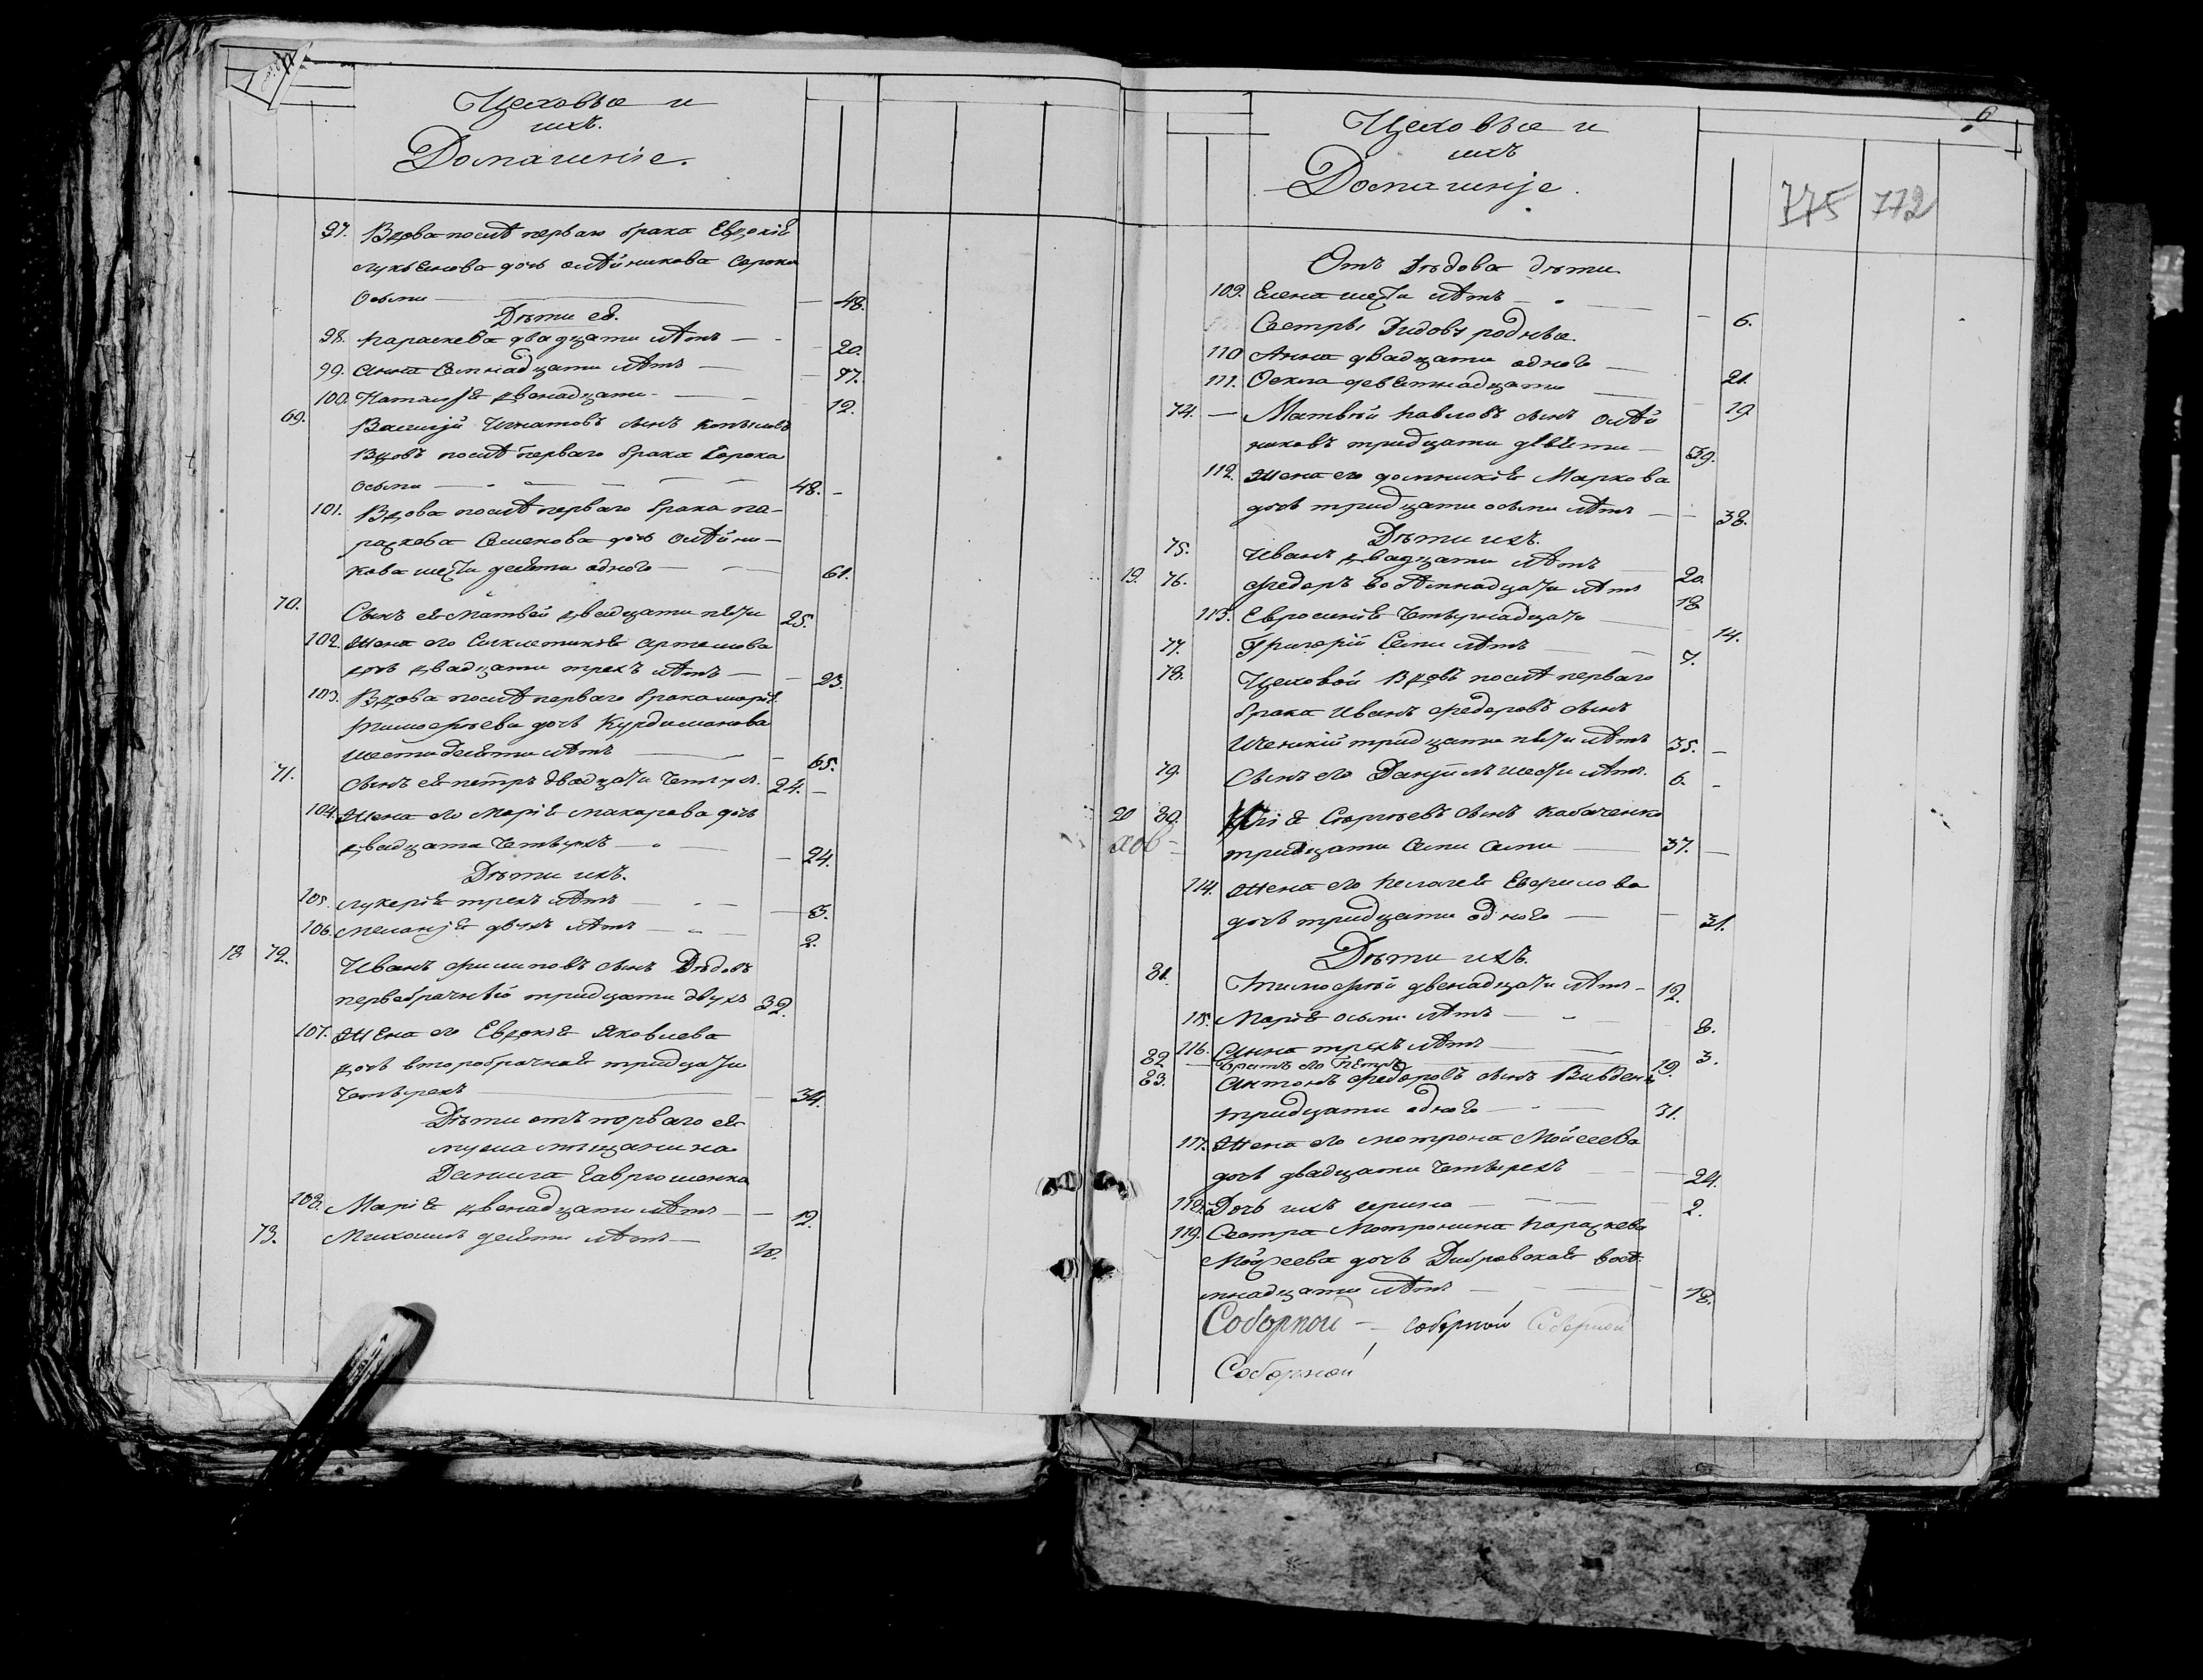 Цеховые и
ихъ.
Домашніе.
97. Вдова послѣ перваго брака Евдокія
лукьянова дочь олѣйникова сорока
осьми — 48.
Дѣти ея.
98. параскева двадцати лѣтъ — 20.
99. анна семнадцати лѣтъ — 17.
100. Наталія двенадцати — 12.
69. Василій Игнатовъ сынъ
Вдовъ послѣ перваго брака сорока
осьми — 48.
101. Вдова послѣ перваго брака па-
раскева Семенова дочь олѣйни-
кова шестидесяти одного — 61.
70. Сынъ ея Матвей двадцати пяти 25.
102. Жена его Сиклетикія артемова
дочь двадцати трехъ лѣтъ — 23.
103. Вдова послѣ перваго брака марія
тимофѣева дочь Курдиманова
шестидесяти лѣтъ — 65.
71. Сынъ ея петръ двадцати Четырехъ 24.
104. Жена его Марія макарова дочь
двадцати Четырехъ — 24.
Дѣти ихъ.
105. лукерія трехъ лѣтъ — 3.
106. меланія двухъ лѣтъ — 2.
18 72. Иванъ филиповъ сынъ Дѣдовъ
первобрачный тридцати двухъ 32.
107. Жена его Евдокія Яковлева
дочь второбрачная тридцати
Четырехъ — 34.
Дѣти отъ перваго ея
мужа мѣщанина
Данила Гаврюшенка
108. Марія двенадцати лѣтъ — 12.
73. Михаилъ десяти лѣтъ — 10.
6
Цеховые и
ихъ
Домашніе.
775 772
Отъ Дѣдова дѣти
109. Елена шести лѣтъ — 6.
Сестры Дидовы родные.
110 Анна двадцати одного — 21.
111. Фекла девятнадцати 19
74. — Матвѣй павловъ сынъ олѣй
никовъ тридцати девяти — 39.
112. Жена его домникія Маркова
дочь тридцати осьми лѣтъ — 38.
Дѣти ихъ.
75. Иванъ двадцати лѣтъ 20
19. 76. федоръ восѣмнадцати лѣтъ 18
113. Евросинія Четырнадцати 14.
77. Григорій Семи лѣтъ 7.
78. Цеховой Вдовъ послѣ перваго
брака Иванъ федоровъ сынъ
тридцати пяти лѣтъ 35. —
79. Сынъ его Даніилъ шести лѣтъ. 6. —
20 80. Сергѣевъ сынъ кабаченко
тридцати семи семи — 37. —
114. Жена его пелагея Ефримова
дочь тридцати одного — 31.
Дѣти ихъ.
81. Тимофѣй двенадцати лѣтъ — 12.
115. Марія осьми лѣтъ — 8.
116. Анна трехъ лѣтъ 3.
82 — братъ его петръ 19.
83. Антонъ федоровъ сынъ
тридцати одного — 31.
117. Жена его мотрона Мойсеева
дочь двадцати Четырехъ — 24.
118. Дочь ихъ ирина — 2.
119. Сестра Мотронина параскева
Мойсеева дочь Дибровская восѣ-
мнадцати лѣтъ — 18.
Соборной — соборной Соборной
Соборной